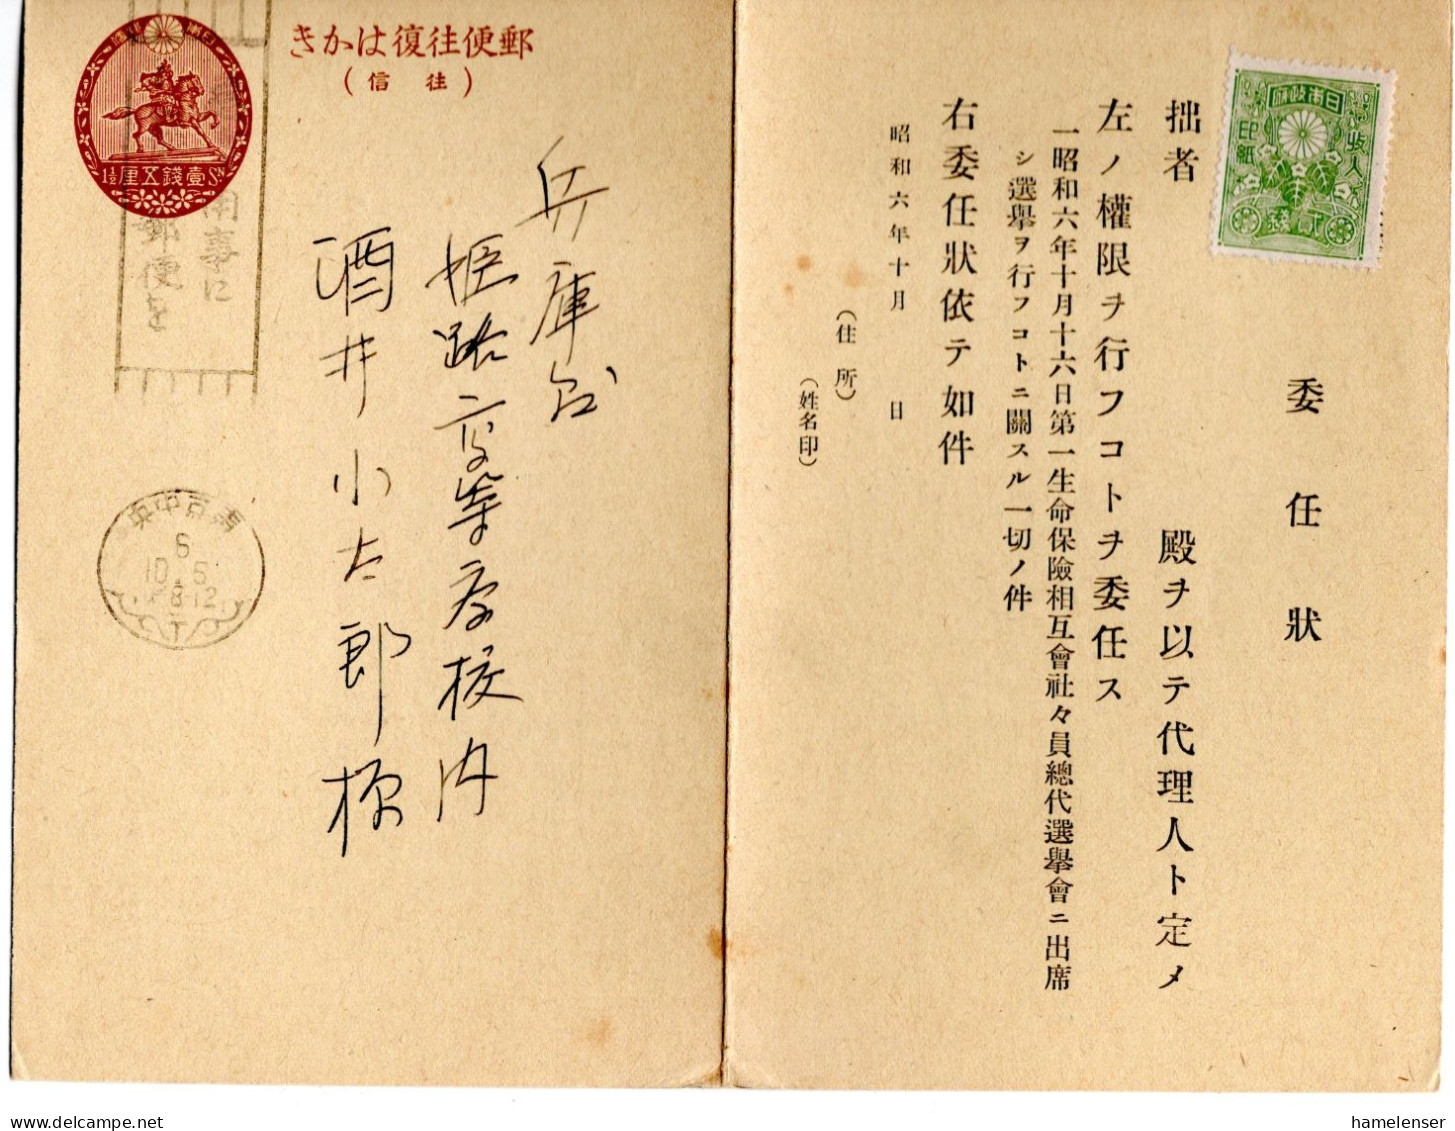 郵便往復はかき
（往信）
日本政府
1½壹錢五厘Sn
用事に
郵便を
東京中央
6
10.5
8-12
兵庫縣
姫路高等学校内
酒井小太郎様
收入印紙
委任狀
拙者　殿ヲ以テ代理人ト定メ
左ノ權限ヲ行フコトヲ委任ス
一昭和六年十月十六日第一生命保險相互會社々員總代選擧會ニ出席
シ選擧ヲ行フコトニ關スル一切ノ件
右委任狀依テ如件
昭和六年十月　日
（住所）
（姓名印）
hamelenser